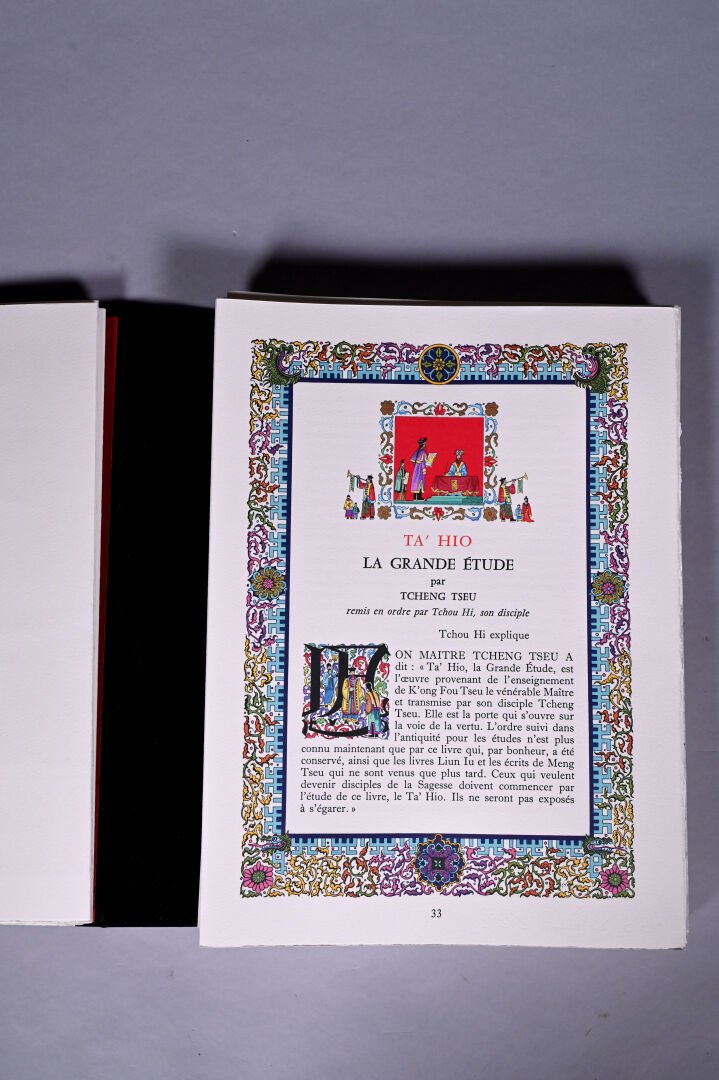 TA' HIO
LA GRANDE ÉTUDE
par
TCHENG TSEU
remis en ordre par Tchou Hi, son disciple
Tchou Hi explique
MON MAITRE TCHENG TSEU A
dit : « Ta' Hio, la Grande Étude, est
l'œuvre provenant de l'enseignement
de K'ong Fou Tseu le vénérable Maître
et transmise par son disciple Tcheng
Tseu. Elle est la porte qui s'ouvre sur
la voie de la vertu. L'ordre suivi dans
l'antiquité pour les études n'est plus
connu maintenant que par ce livre qui, par bonheur, a été
conservé, ainsi que les livres Liun Iu et les écrits de Meng
Tseu qui ne sont venus que plus tard. Ceux qui veulent
devenir disciples de la Sagesse doivent commencer par
l'étude de ce livre, le Ta' Hio. Ils ne seront pas exposés
à s'égarer. »
33